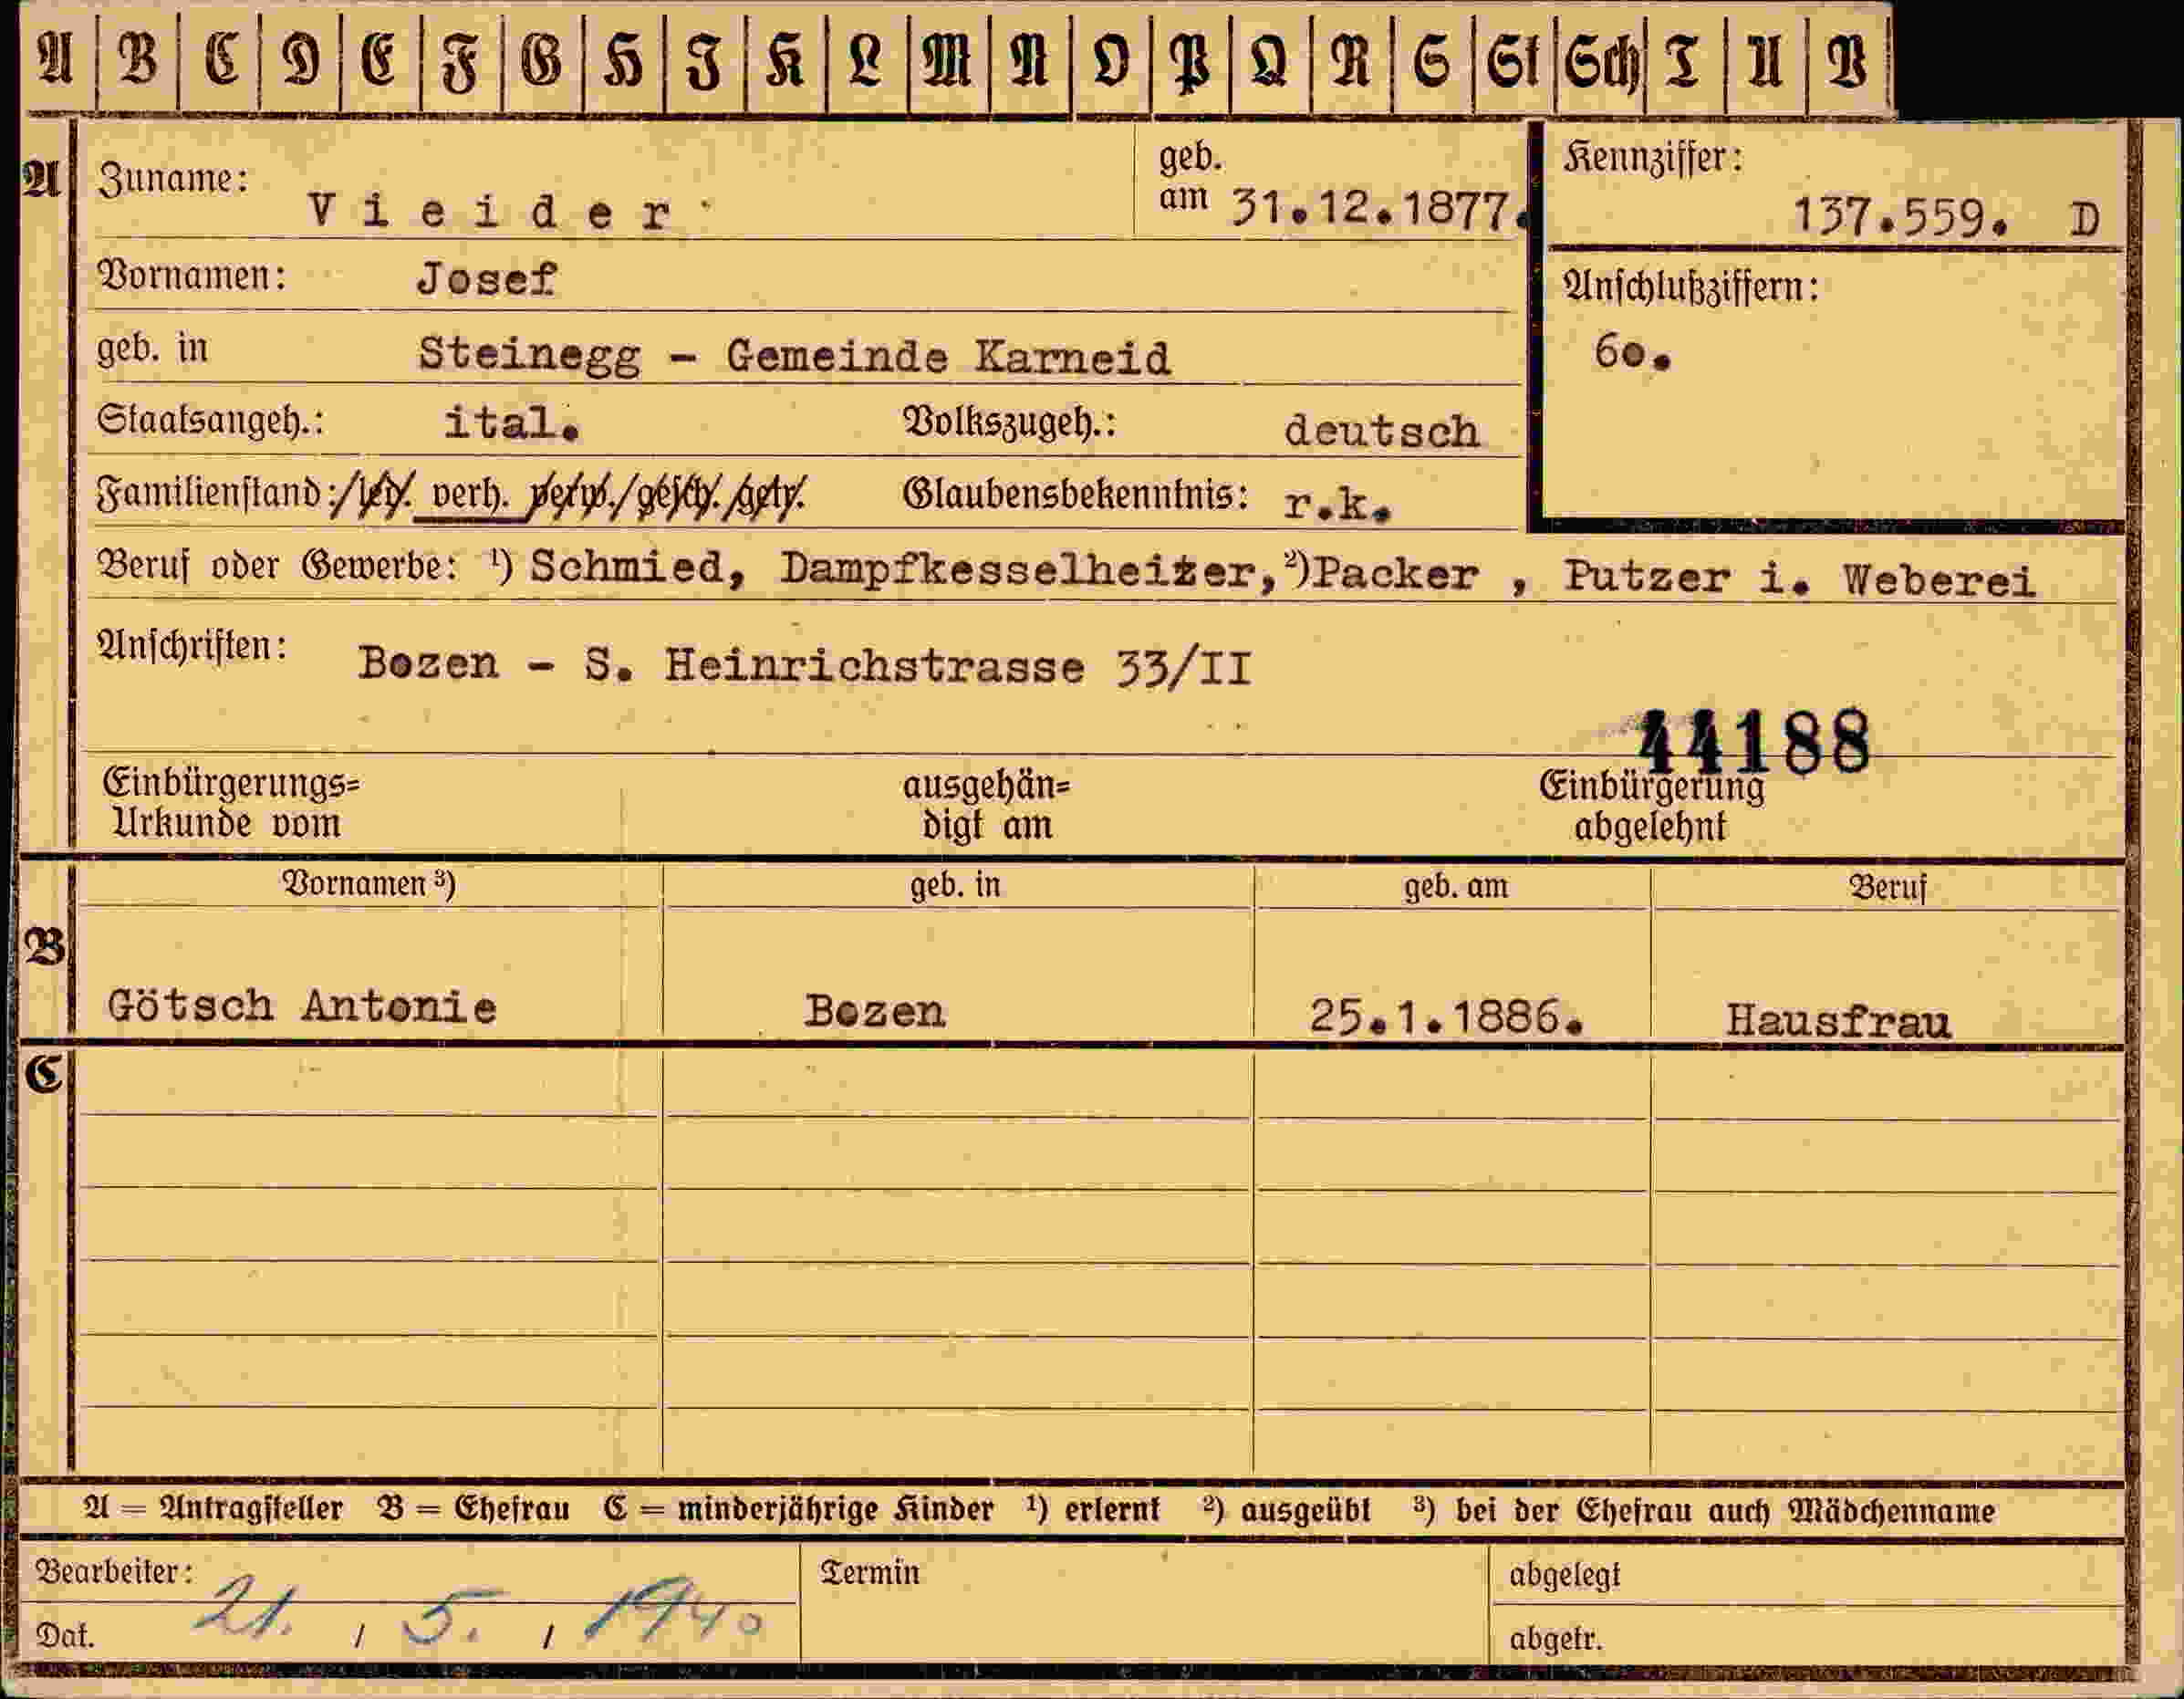 A B C D E F G H I K L M N O P Q R S St Sch T U V
A Zuname: Vieider geb. am 31.12.1877. Kennziffer: 137.559. D
Vornamen: Josef Anschlußziffern:
geb. in Steinegg - Gemeinde Karneid 60.
Staatsangeh.: ital. Volkszugeh.: deutsch
Familienstand: led. verh. verw. gesch. getr. Glaubensbekenntnis: r.k.
Beruf oder Gewerbe: ¹) Schmied, Dampfkesselheizer, ²) Packer , Putzer i. Weberei
Anschriften: Bozen - S. Heinrichstrasse 33/II
44188
Einbürgerungs= ausgehän= Einbürgerung
Urkunde vom digt am abgelehnt
Vornamen ³) geb. in geb. am Beruf
B
Götsch Antonie Bozen 25.1.1886. Hausfrau
C
A = Antragsteller B = Ehefrau C = minderjährige Kinder ¹) erlernt ²) ausgeübt ³) bei der Ehefrau auch Mädchenname
Bearbeiter: Termin abgelegt
Dat. 21. / 5. / 1940 abgetr.